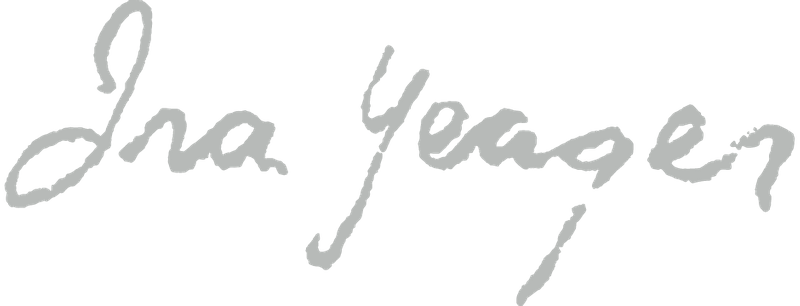 Ira Yeager